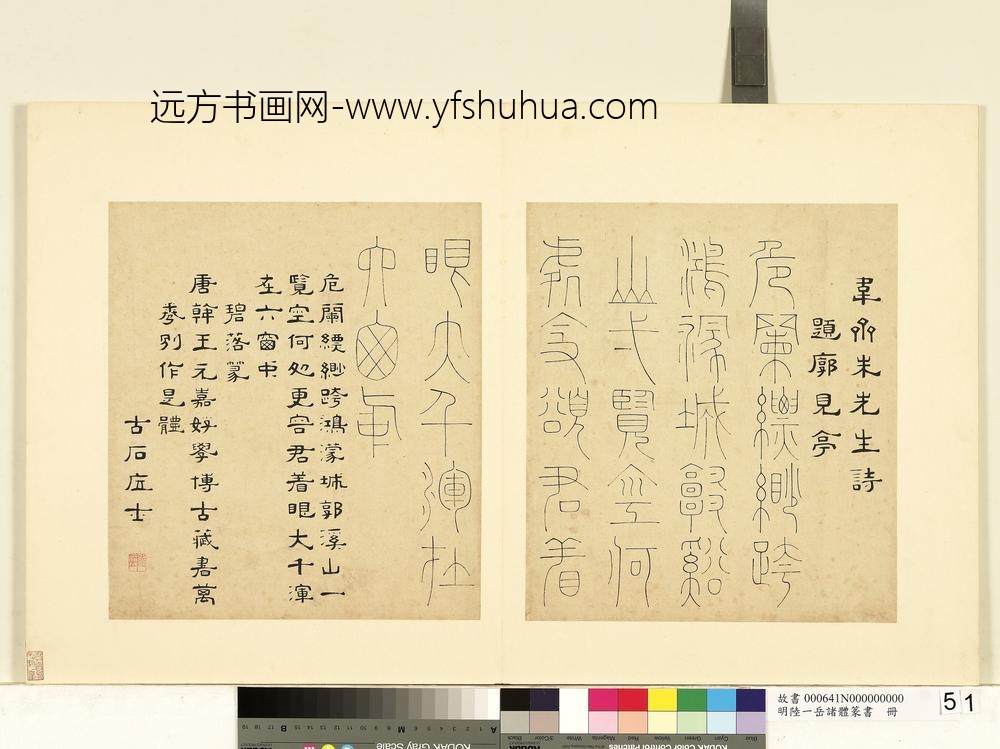 远方书画网-www.yfshuhua.com
韋齋朱先生詩
題廓見亭
危闌縹緲跨
鴻濛城郭谿
山弌覽空何
處更容君着
眼大千渾在
六窗中
危闌縹緲跨鴻濛城郭溪山一
覽空何処更容君着眼大千渾
在六窗中
碧落篆
唐韓王元嘉好學博古藏書萬
卷別作是體
古石居士
故書 000641N000000000
明陸一岳諸體篆書 冊
51
KODAK Gray Scale
KODAK Color Control Patches
Blue
Cyan
Green
Yellow
Red
Magenta
White
3/Color
Black